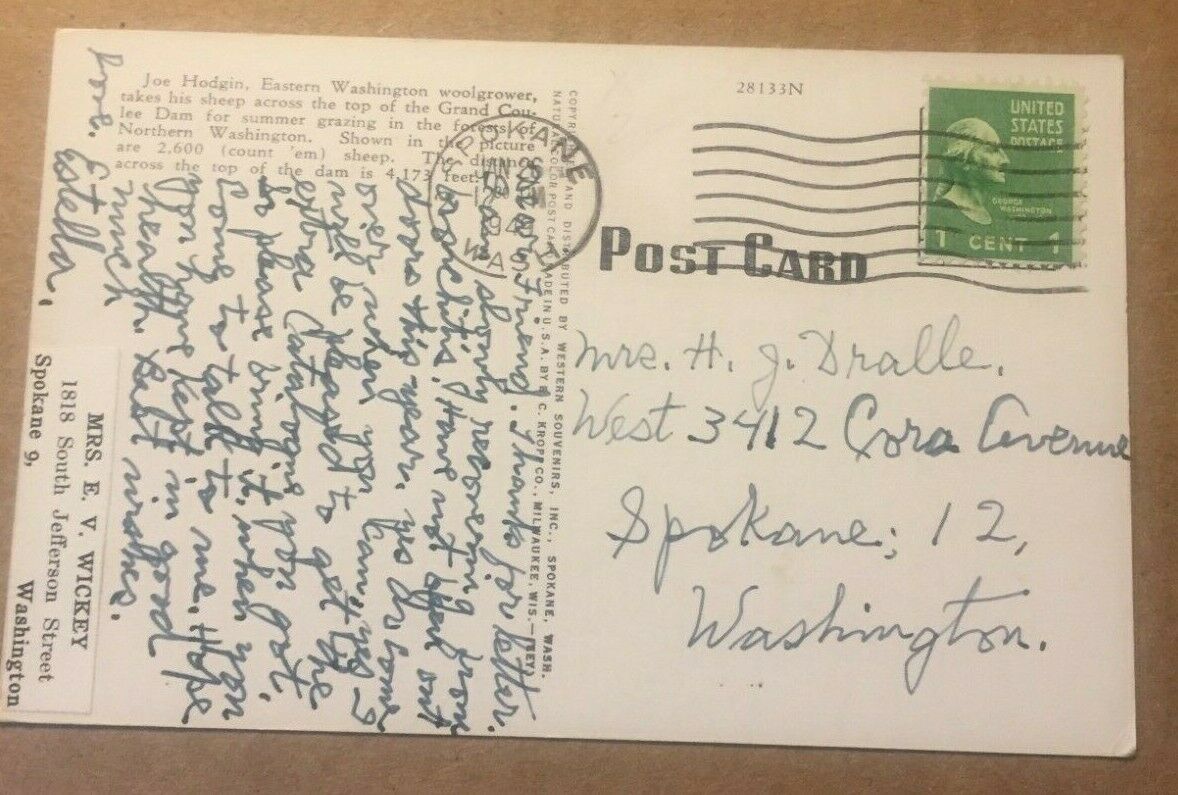 Joe Hodgin, Eastern Washington woolgrower,
takes his sheep across the top of the Grand Cou-
lee Dam for summer grazing in the forests of
Northern Washington. Shown in the picture
are 2,600 (count 'em) sheep. The distance
across the top of the dam is 4,173 feet.
28133N
UNITED
STATES
POSTAGE
GEORGE
WASHINGTON
1 CENT 1
SPOKANE
WASH
POST CARD
COPYR AND DISTRIBUTED BY WESTERN SOUVENIRS, INC., SPOKANE, WASH.
NATURAL COLOR POST CARD MADE IN U.S.A. BY E. C. KROPP CO., MILWAUKEE, WIS.
Mrs. H. J. Dralle,
West 3412 Cora Avenue
Spokane; 12,
Washington.
Friend. Thanks for letter.
am slowly recovering from
bronchitis. Have not been out
doors this year. yes do come
over when you can, yes I
will be pleased to get the
extra Catalogue you got,
so please bring it, when you
come to talk to me. Hope
you have kept in good
health. Best wishes.
much
love. Estella.
MRS. E. V. WICKEY
1818 South Jefferson Street
Spokane 9, Washington